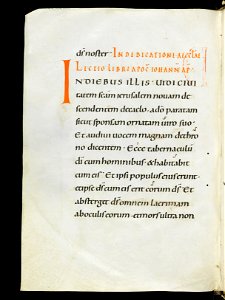 ds noster· IN DEDICATIONE AECCLAE
LECTIO LIBRI APOC IOHANNIS AP
IN DIEBUS ILLIS· Vidi civi
tatem scam ierusalem novam de
scendentem de caelo· a do paratam
sicut sponsam ornatam viro suo·
Et audivi vocem magnam de thro
no dicentem· Ecce tabernaculu
di cum hominibus & habitabit
cum eis· Et ipsi populus eius erunt·
et ipse ds cum eis erit eorum ds· Et
absterget ds omnem lacrimam
ab oculis eorum· et mors ultra non